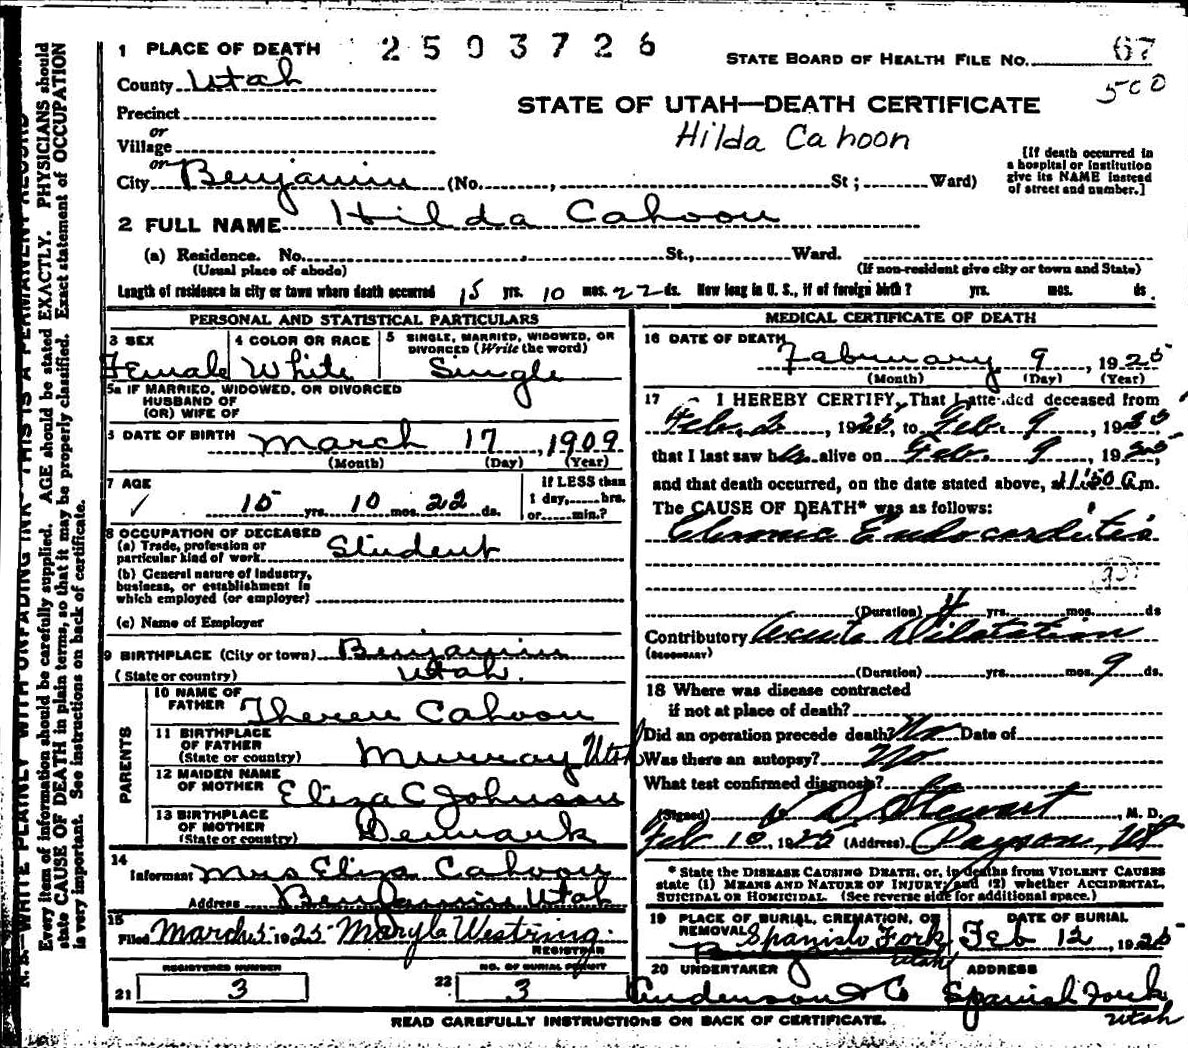 1 PLACE OF DEATH 2503726 STATE BOARD OF HEALTH FILE NO. 67
County Utah 500
Precinct
or
Village
STATE OF UTAH—DEATH CERTIFICATE
Hilda Cahoon
or
City Benjamin (No. , St; Ward)
[If death occurred in
a hospital or institution
give its NAME instead
of street and number.]
2 FULL NAME Hilda Cahoon
(a) Residence. No. , St., Ward.
(Usual place of abode) (If non-resident give city or town and State)
Length of residence in city or town where death occurred 15 yrs. 10 mos. 22 ds. How long in U. S., if of foreign birth? yrs. mos. ds.
PERSONAL AND STATISTICAL PARTICULARS
3 SEX 4 COLOR OR RACE 5 SINGLE, MARRIED, WIDOWED, OR
DIVORCED (Write the word)
Female White Single
5a IF MARRIED, WIDOWED, OR DIVORCED
HUSBAND OF
(OR) WIFE OF
6 DATE OF BIRTH March 17, 1909
(Month) (Day) (Year)
7 AGE If LESS than
1 day, hrs.
15 yrs. 10 mos. 22 ds. or min.?
8 OCCUPATION OF DECEASED
(a) Trade, profession or
particular kind of work Student
(b) General nature of industry,
business, or establishment in
which employed (or employer)
(c) Name of Employer
9 BIRTHPLACE (City or town) Benjamin
(State or country) Utah.
PARENTS
10 NAME OF
FATHER Theren Cahoon
11 BIRTHPLACE
OF FATHER
(State or country) Murray Utah
12 MAIDEN NAME
OF MOTHER Eliza C Johnson
13 BIRTHPLACE
OF MOTHER
(State or country) Denmark
14
Informant Mrs Eliza Cahoon
Address Benjamin Utah
15
Filed March 5 1925 Meryla Westring
REGISTRAR
REGISTERED NUMBER NO. OF BURIAL PERMIT
21 3 22 3
MEDICAL CERTIFICATE OF DEATH
16 DATE OF DEATH
February 9, 1925
(Month) (Day) (Year)
17 I HEREBY CERTIFY, That I attended deceased from
Feb. 2, 1925, to Feb. 9, 1925
that I last saw her alive on Feb. 9, 1925,
and that death occurred, on the date stated above, at 11:50 a.m.
The CAUSE OF DEATH* was as follows:
Chronic Endocarditis
(Duration) 4 yrs. mos. ds
Contributory Acute Dilatation
(SECONDARY)
(Duration) yrs. mos. 9 ds.
18 Where was disease contracted
if not at place of death?
Did an operation precede death? No Date of
Was there an autopsy? No
What test confirmed diagnosis?
(Signed) Stewart, M. D.
Feb 10 1925 (Address) Payson, Ut
* State the DISEASE CAUSING DEATH, or, in deaths from VIOLENT CAUSES
state (1) MEANS AND NATURE OF INJURY, and (2) whether ACCIDENTAL,
SUICIDAL OR HOMICIDAL. (See reverse side for additional space.)
19 PLACE OF BURIAL, CREMATION, OR
REMOVAL DATE OF BURIAL
Spanish Fork Utah Feb 12, 1925
20 UNDERTAKER ADDRESS
Anderson & Co Spanish Fork
Utah
READ CAREFULLY INSTRUCTIONS ON BACK OF CERTIFICATE.
N. B.—WRITE PLAINLY WITH UNFADING INK—THIS IS A PERMANENT RECORD
Every item of information should be carefully supplied. AGE should be stated EXACTLY. PHYSICIANS should
state CAUSE OF DEATH in plain terms, so that it may be properly classified. Exact statement of OCCUPATION
is very important. See instructions on back of certificate.